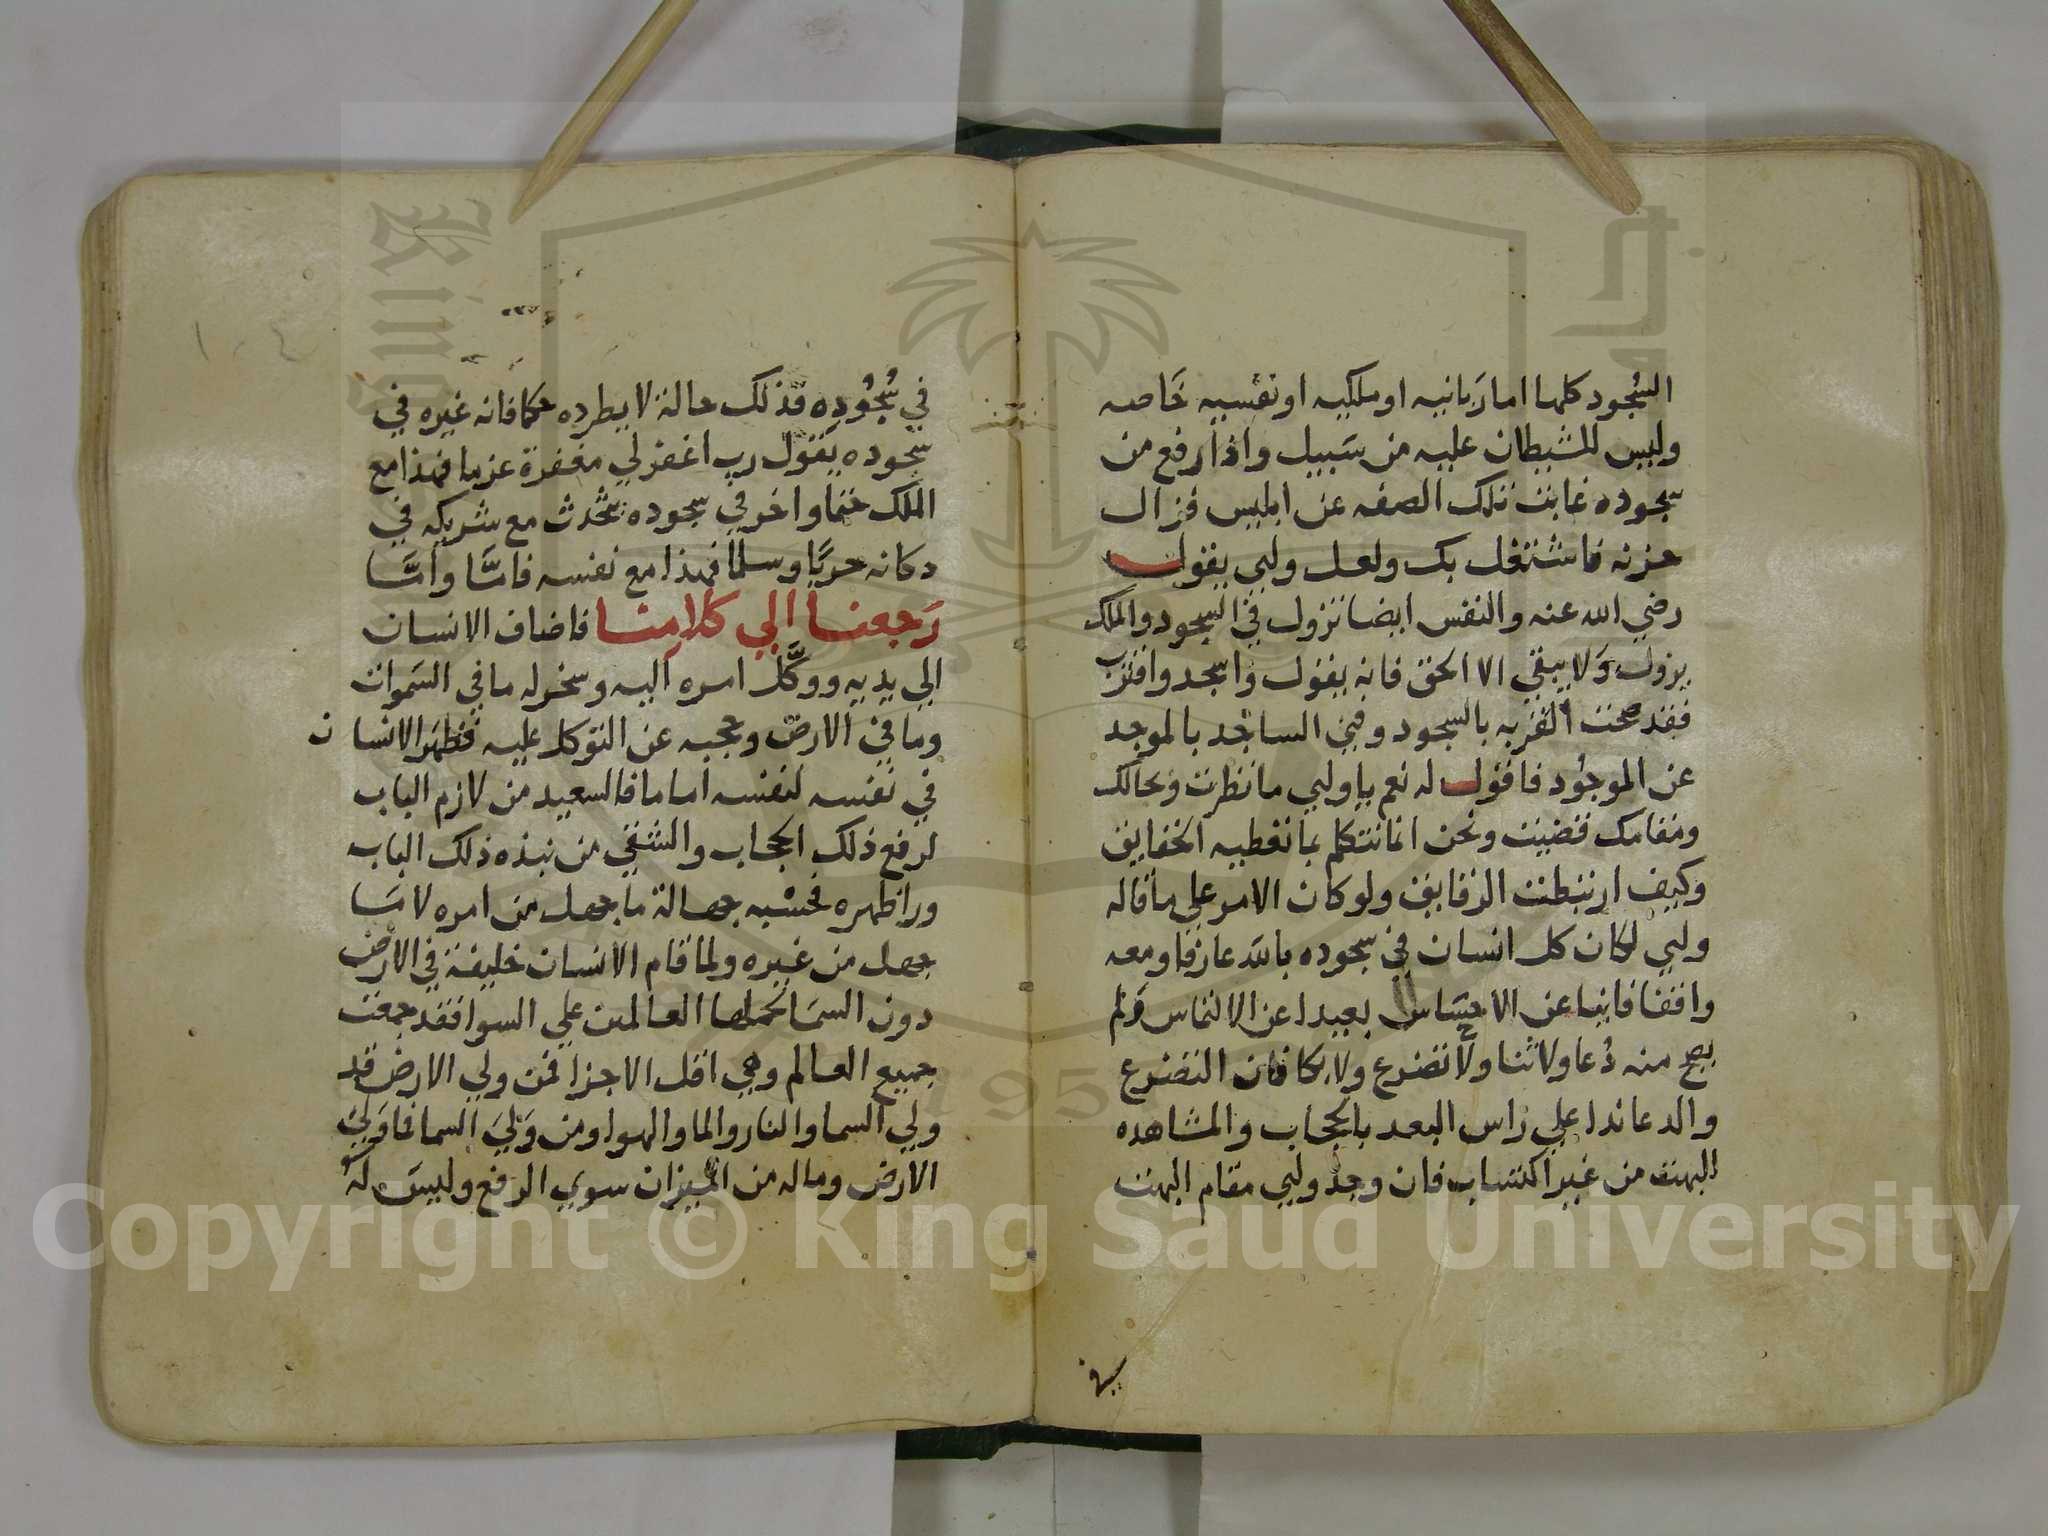 السُجود كلها اما ربانيه او ملكيه او نفسيه خاصه
وليس للشيطان عليه من سَبيل واذا رفع من
سجوده غابت تلك الصفه عن ابليس فزال
حزنه فاشتغل بك ولعل وليي يقول
رضي الله عنه والنفس ايضا تزول في السجود والملك
يزول وَلا يبقي الا الحق فانه يقول واسجد واقترب
فقد صحت القربه بالسجود وفني الساجد بالموجد
عن الموجُود فاقول له نعم ياوليي ما نظرت وبحالك
ومقامك قضيت ونحن انما نتكلم بما تعطيه الحقايق
وكيف ارتبطت الرقايق ولو كان الامر علي ما قاله
وليي لكان كل انسان في سجوده بالله عارفا ومعه
واقفا فانيا عن الاحسَاس بعيدا عن الالتماس وَلم
يصح منه دُعا ولا ثنا ولا تضرع ولا بكا فان التضرع
والدعا ندا علي راس البعد بالحجاب والمشاهده
البهت من غير اكتساب فان وجد وليي مقام البهت
في
في سُجُودِه فذلك حالة لا يطرده حكما فانه غيره في
سجوده يقول رب اغفر لي مغفرة عزما فهذا مع
الملك ختما واخر في سجوده يتحدث مع شريكه في
دكانه حربًا وسلما فهذا مع نفسه فامَّا وامَّا
رَجعنا الي كلامنا فاضاف الانسان
الي يديه ووكَّل امره اليه وسخر له ما في السَموات
وما في الارض وحجبه عن التوكل عليه فظهر الانسان
في نفسه لنفسه اماما فالسعيد من لازم الباب
لرفع ذلك الحجاب والشقي من نبذه ذلك الباب
ورا ظهره فحسْبه جهالة ما جهل من امره لا مَا
جهل من غيره ولما قام الانسان خليفة في الارض
دون السمَا لحملها العالمين علي السوا فقد جمعت
جميع العالم وهي اقل الاجزا فمن ولي الارض قد
ولي السما والنار والما والهوا ومن وَليَ السما فما وَليَ
الارض وماله من الميزان سوي الرفع وليسَ لهُ
١٠٤
King Saud University
1957
Copyright © King Saud University